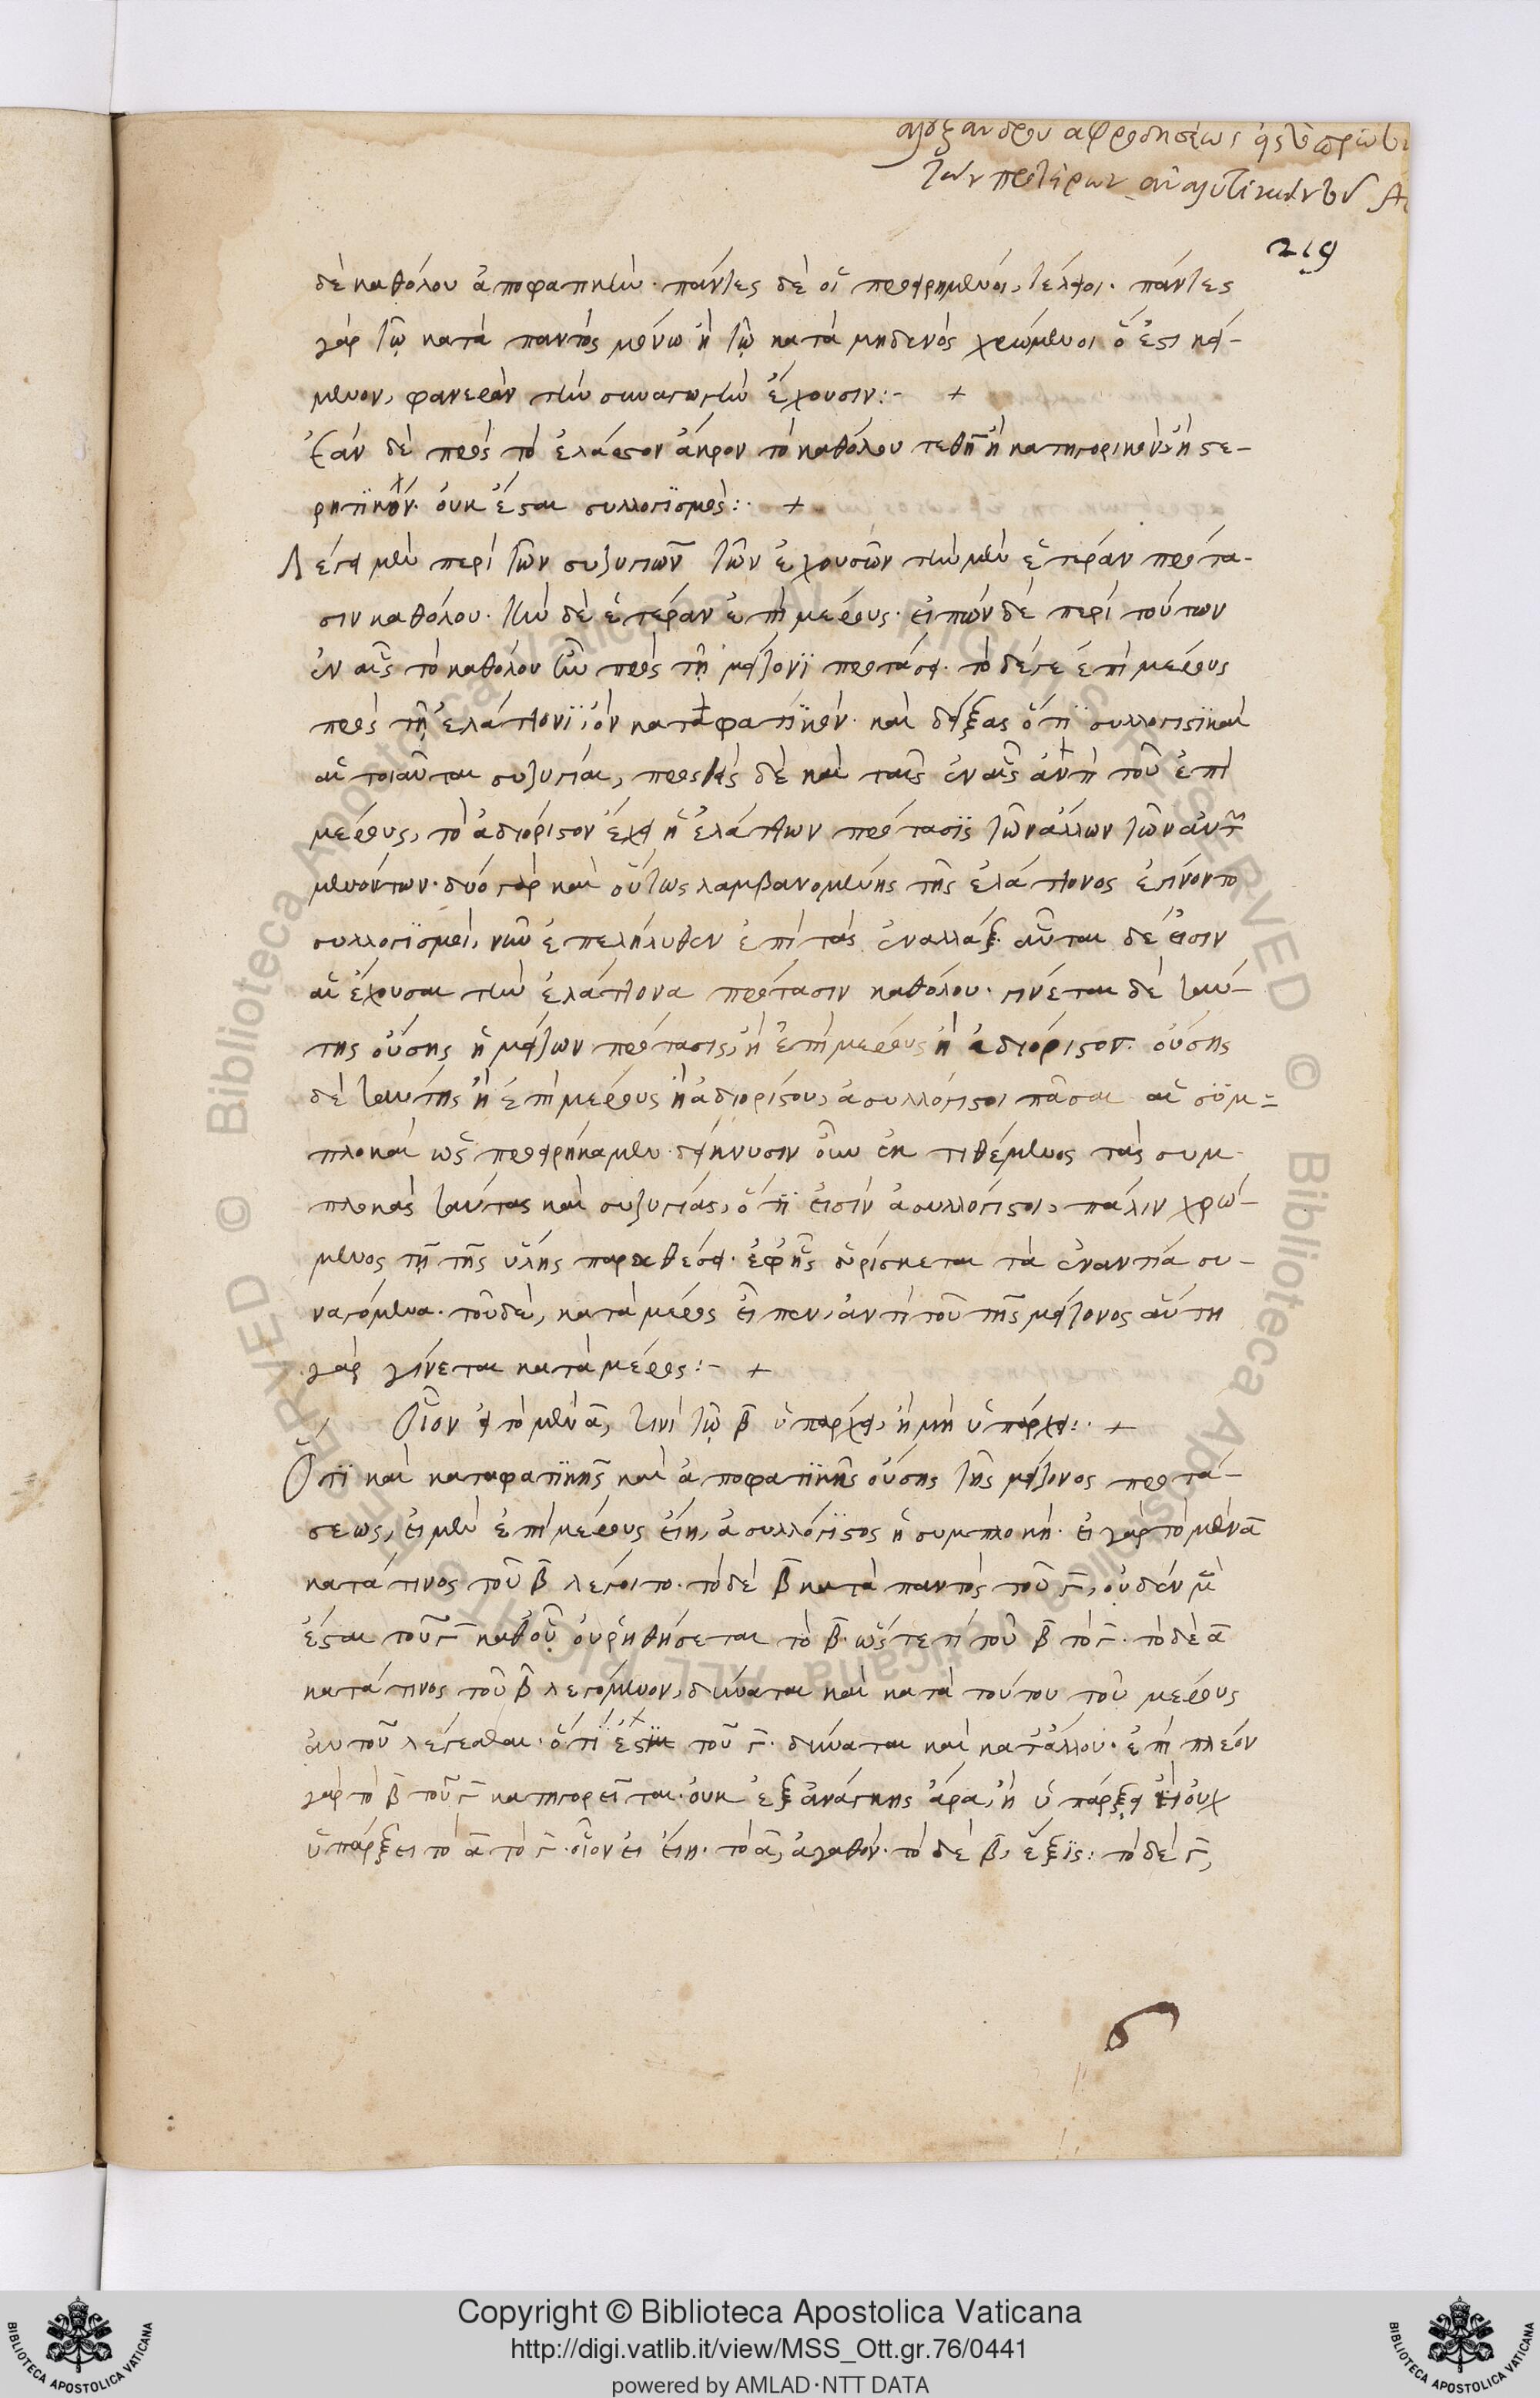 ἀλεξάνδρου ἀφροδησέως εἰς τὸ πρῶτον
τῶν προτέρων ἀναλυτικῶν τοῦ
219
δὲ καθόλου ἀποφατικὴν. πάντες δὲ οἱ προειρημένοι, τέλειοι. πάντες
γὰρ τῷ κατὰ παντὸς μόνω ἢ τῷ κατὰ μηδενὸς χρώμενοι ὅ ἐστι κεί-
μενον, φανερὰν τὴν συναγωγὴν ἔχουσιν:- +
Ἐὰν δὲ πρὸς τὸ ἔλαττον ἄκρον τὸ καθόλου τεθῇ ἢ κατηγορικὸν, ἢ στε-
ρητϊκόν. οὐκ ἔσται συλλογϊσμὸς:. +
Λέγει μὲν περὶ τῶν συζυγιῶν τῶν ἐχουσῶν τὴν μὲν ἑτέραν πρότα-
σιν καθόλου. τὴν δὲ ἑτέραν ἐπὶ μέρους. εἰπὼν δὲ περὶ τούτων
ἐν αἷς τὸ καθόλου ἦν πρὸς τῇ μείζονϊ προτάσει. τὸ δέ γε ἐπὶ μέρους
πρὸς τῇ ἐλάττονϊ, ὂν καταφατϊκόν. καὶ δείξας ὅτϊ συλλογιστϊκαὶ
αἱ τοιαῦται συζυγίαι, προσθεὶς δὲ καὶ ταῖς ἐν αἷς ἀντὶ τοῦ ἐπὶ
μέρους, τὸ ἀδιόριστον ἔχει ἡ ἐλάττων πρότασϊς τῶν ἄλλων τῶν αὐτῶν
μενόντων. δύο γὰρ καὶ οὕτως λαμβανομένης τῆς ἐλάττονος ἐγίνοντο
συλλογϊσμοὶ, νῦν ἐπελήλυθεν ἐπὶ τὰς ἐναλλάξ. αὗται δέ εἰσιν
αἱ ἔχουσαι τὴν ἐλάττονα πρότασιν καθόλου. γινέται δὲ ταύ-
της οὔσης ἡ μείζων πρότασις, ἢ ἐπὶ μέρους ἢ ἀδιόριστος. οὔσης
δὲ ταύτης ἢ ἐπὶ μέρους ἢ ἀδιορίστου, ἀσυλλόγιστοι πᾶσαι αἱ σϋμ=
πλοκαὶ ὡς προειρήκαμεν. δείκνυσιν οὖν ἐκτιθέμενος τὰς συμ-
πλοκὰς ταύτας καὶ συζυγίας, ὅτϊ εἰσὶν ἀσυλλόγιστοι, πάλιν χρώ-
μενος τῇ τῆς ὕλης παραθέσει. ἐφ' ἧς εὑρίσκεται τὰ ἐναντία συ-
ναγόμενα. τοῦ δὲ, κατὰ μέρος εἶπεν, ἀντὶ τοῦ τῆς μείζονος αὕτη
γὰρ γίνεται κατὰ μέρος:- +
Οἷον εἰ τὸ μὲν α, τινὶ τῷ β ὑπάρχει, ἢ μὴ ὑπάρχει:. +
Ὅτϊ καὶ καταφατϊκῆς καὶ ἀποφατϊκῆς οὔσης τῆς μείζονος προτά-
σεως, εἰ μὲν ἐπὶ μέρους εἴη, ἀσυλλόγϊστος ἡ συμπλοκή. εἰ γὰρ τὸ μὲν α
κατά τινος τοῦ β λέγοιτο. τὸ δὲ β κατὰ παντὸς τοῦ γ, οὐδὲν μὲν
ἔσται τοῦ γ καθ' οὗ οὐ ῥηθήσεται τὸ β. ὥστέ τι τοῦ β τὸ γ. τὸ δὲ α
κατά τινος τοῦ β λεγόμενον, δύναται καὶ κατὰ τούτου τοῦ μέρους
αὐτοῦ λέγεσθαι. ὅτϊ ἐστϊ τοῦ γ. δύναται καὶ κατ' ἄλλου. ἐπὶ πλέον
γὰρ τὸ β τοῦ γ κατηγορεῖται. οὐκ ἐξ ἀνάγκης ἄρα, ἢ ὑπάρξει ἢ οὐχ
ὑπάρξει τὸ α τὸ γ. οἷον εἰ εἴη. τὸ α, ἀγαθόν. τὸ δὲ β, ἕξϊς: τὸ δὲ γ,
Copyright © Biblioteca Apostolica Vaticana
http://digi.vatlib.it/view/MSS_Ott.gr.76/0441
powered by AMLAD·NTT DATA